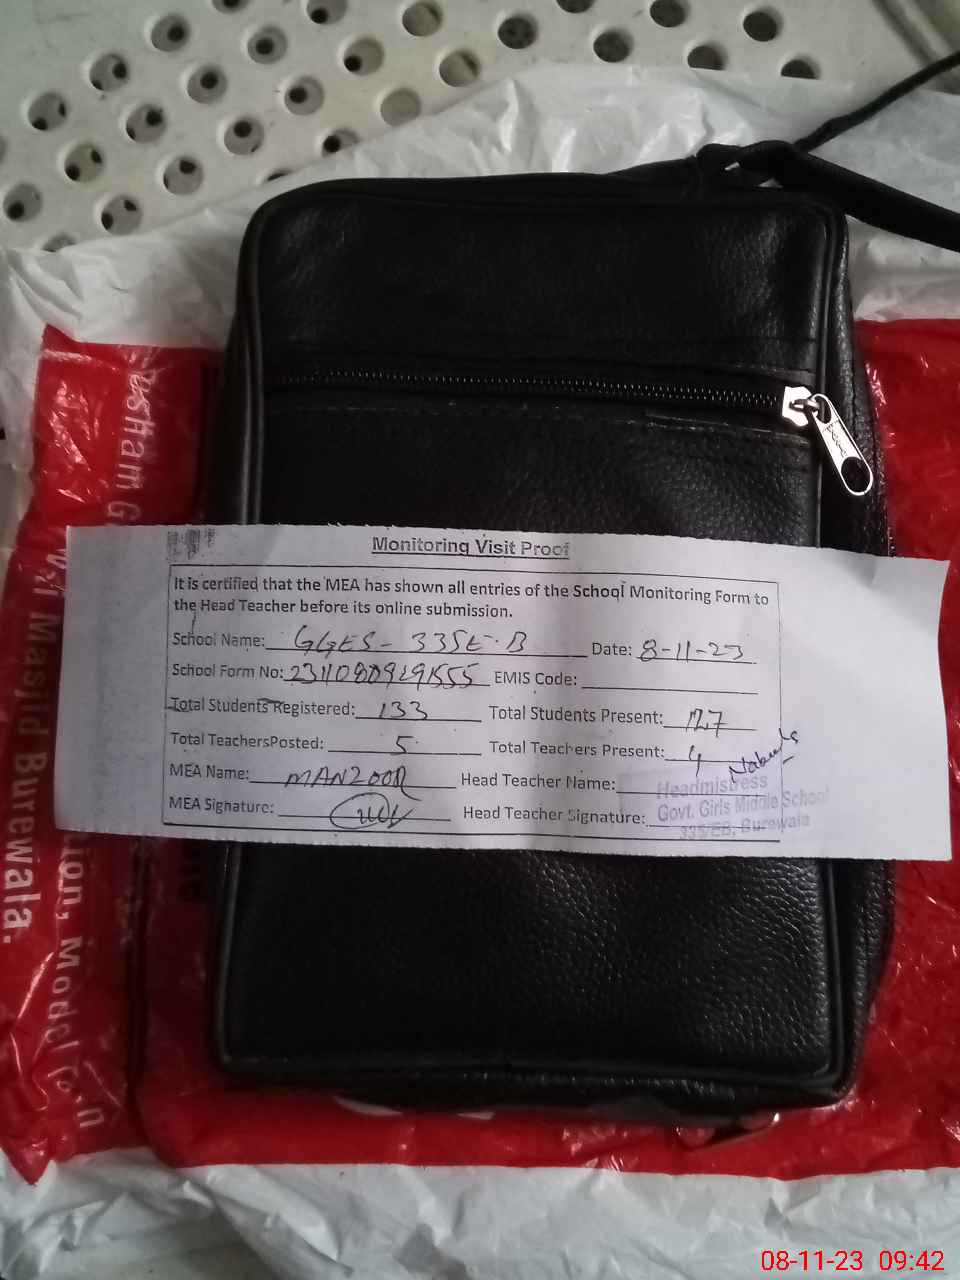 Monitoring Visit Proof
It is certified that the MEA has shown all entries of the School Monitoring Form to
the Head Teacher before its online submission.
School Name: GGES - 335E.B Date: 8-11-23
School Form No: EMIS Code:
Total Students Registered: 133 Total Students Present: 127
Total TeachersPosted: 5 Total Teachers Present: 4
MEA Name: MANZOOR Head Teacher Name:
Headmistress
MEA Signature: Head Teacher Signature:
Govt. Girls Middle School
335/EB, Burewala
Masjid Burewala.
Model
08-11-23 09:42